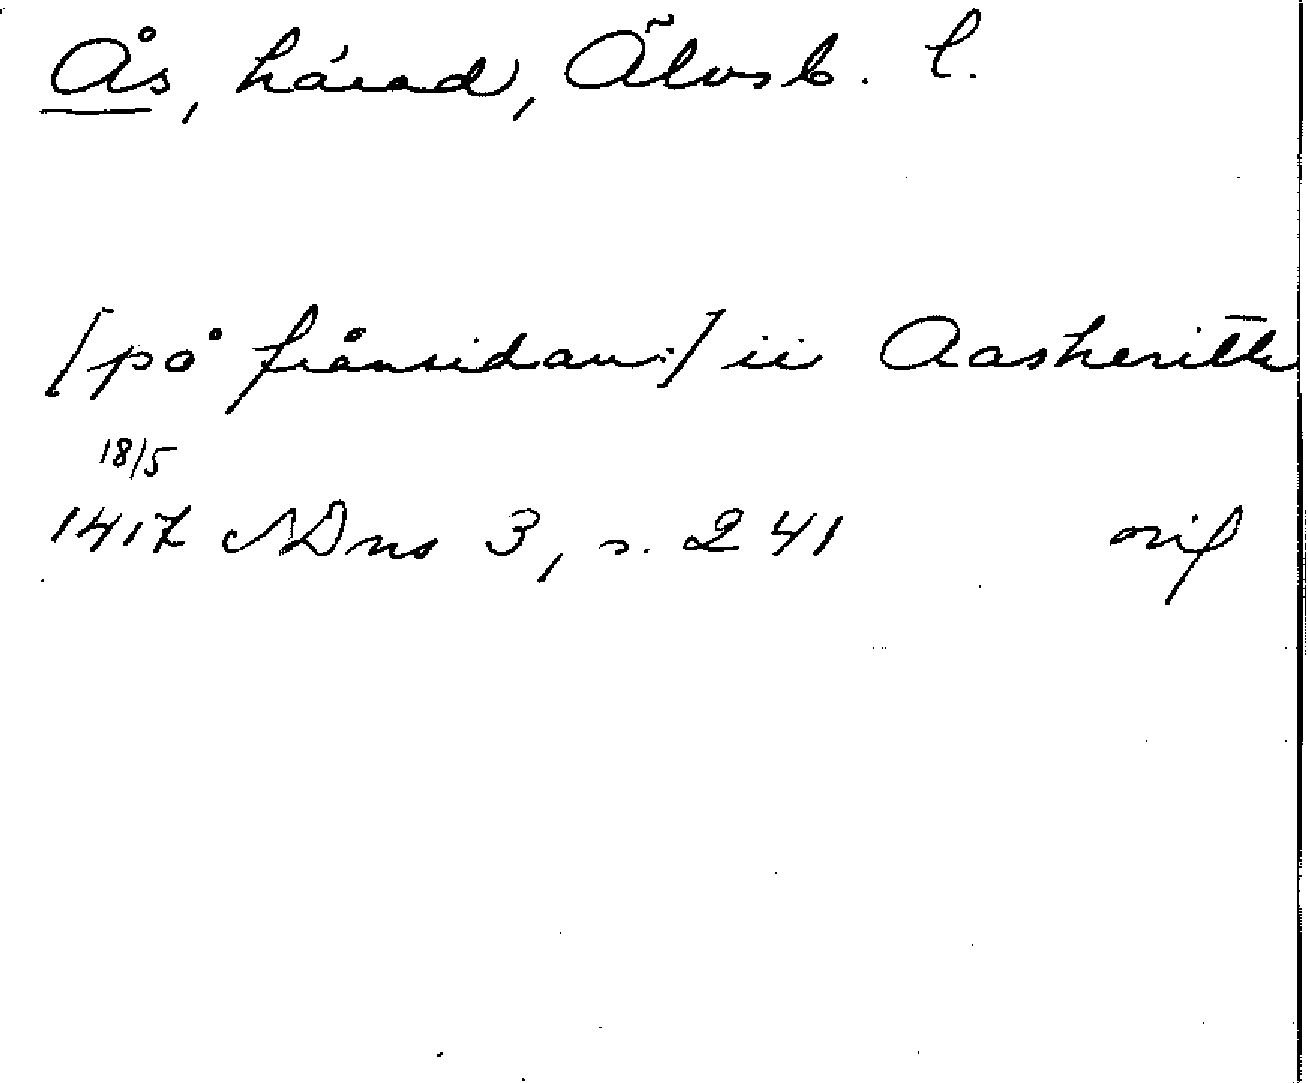 Ås, härad, Älvsb. l.
[på frånsidan:] ii Aasherith
18/5
1417 NDns 3, s. 241 orig